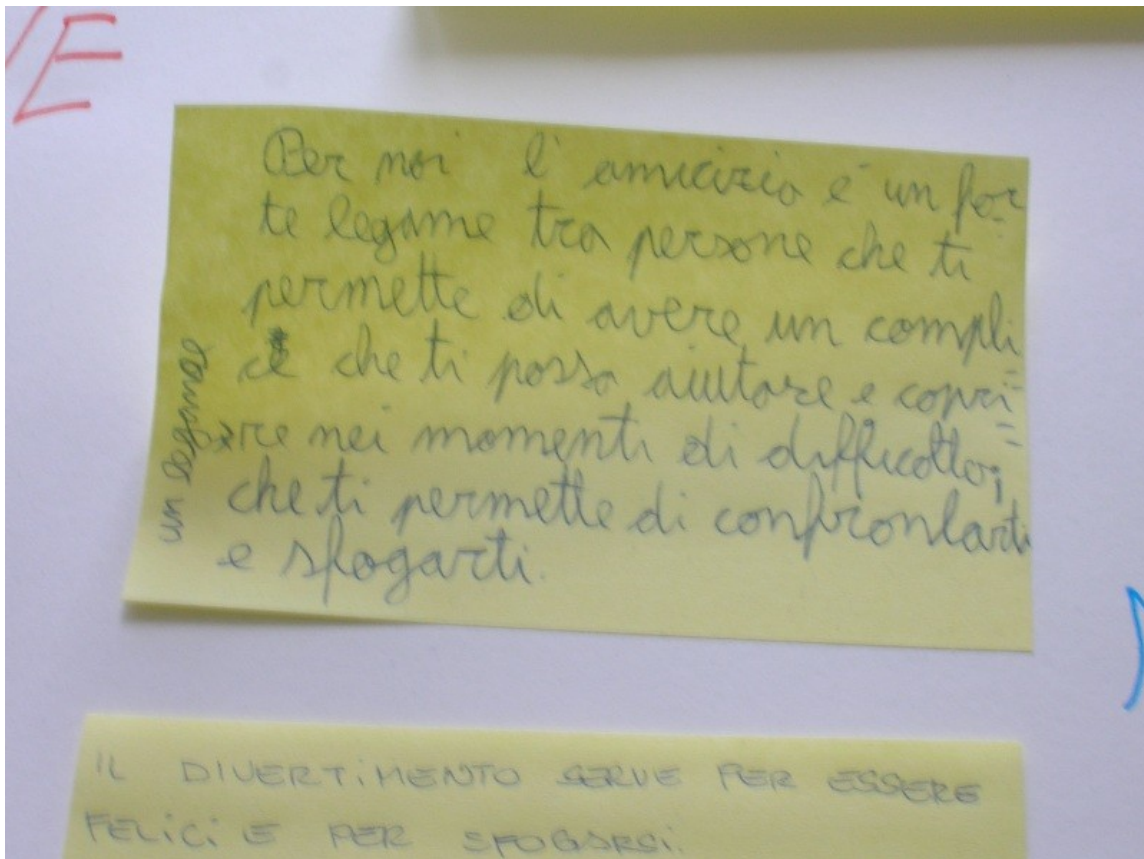 E
Per noi l'amicizia è un for
te legame tra persone che ti
permette di avere un compli
ce che ti possa aiutare e copri=
re nei momenti di difficoltà;
che ti permette di confrontarti
e sfogarti.
un legame
IL DIVERTIMENTO SERVE PER ESSERE
FELICI E PER SFOGARSI.